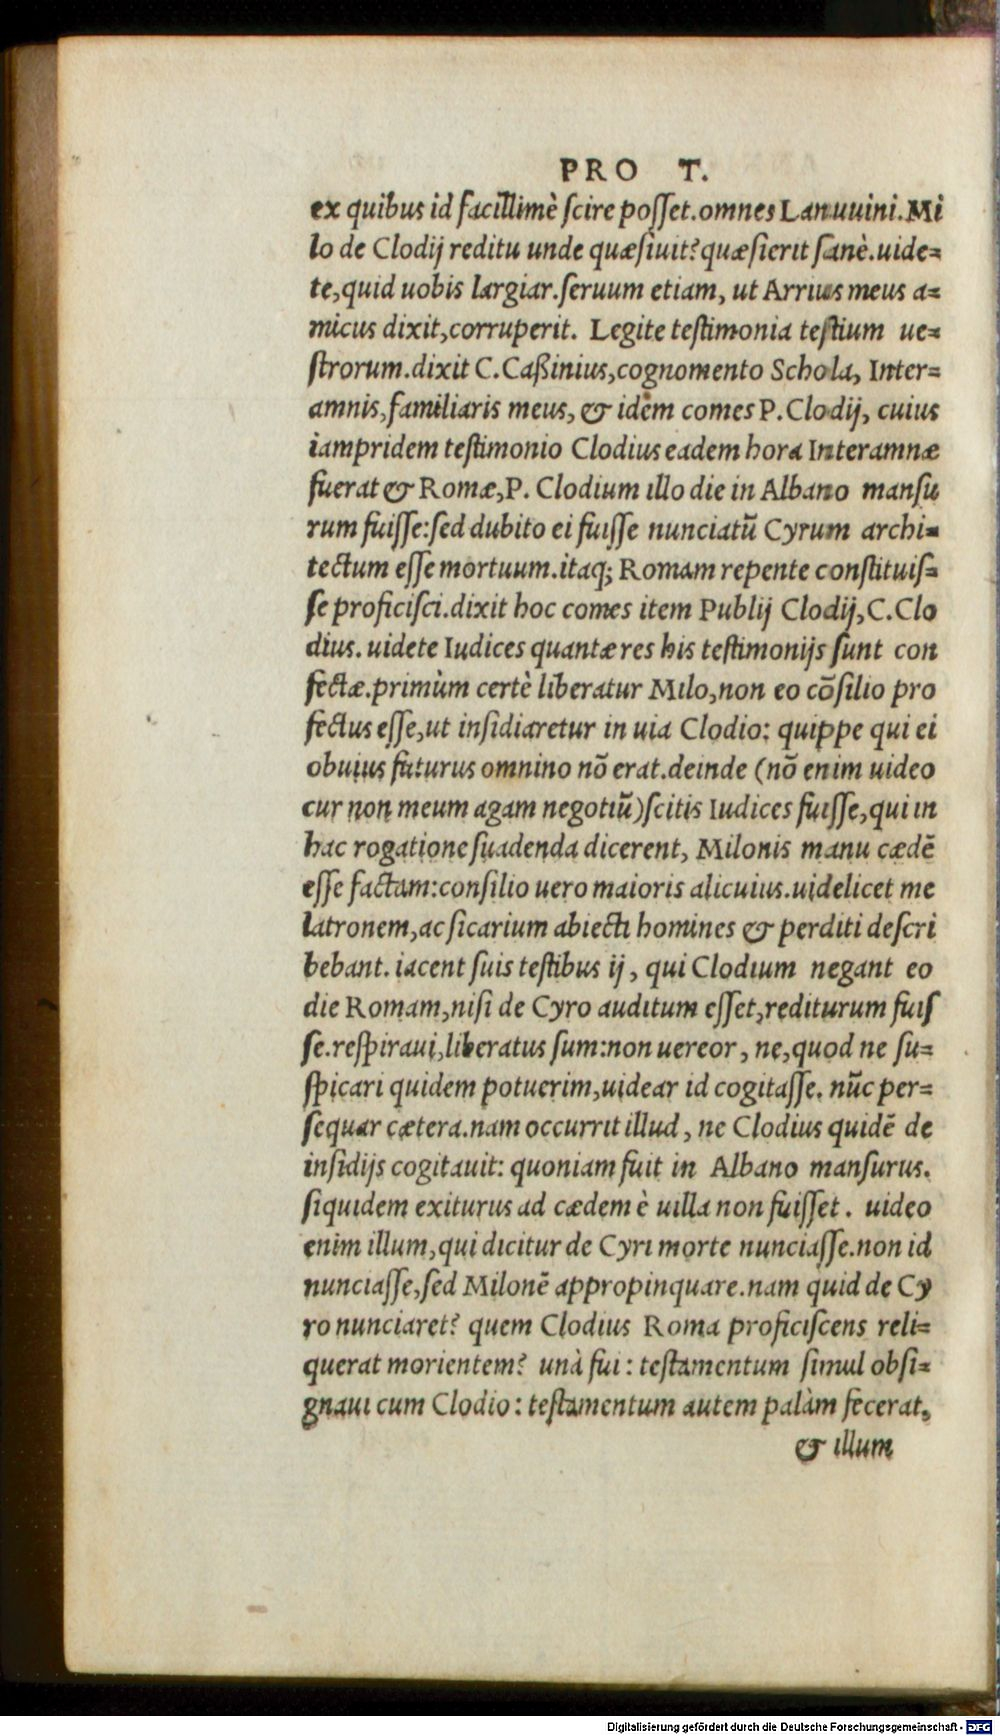 PRO T.
ex quibus id facillimè scire posset. omnes Lanuuini. Mi
lo de Clodij reditu unde quæsiuit? quæsierit sanè. uide-
te, quid uobis largiar. seruum etiam, ut Arrius meus a-
micus dixit, corruperit. Legite testimonia testium ue-
strorum. dixit C. Caßinius, cognomento Schola, Inter-
amnis, familiaris meus, & idem comes P. Clodij, cuius
iampridem testimonio Clodius eadem hora Interamnæ
fuerat & Romæ, P. Clodium illo die in Albano mansu
rum fuisse: sed dubito ei fuisse nunciatū Cyrum archi-
tectum esse mortuum. itaq; Romam repente constituis-
se proficisci. dixit hoc comes item Publij Clodij, C. Clo
dius. uidete Iudices quantæ res his testimonijs sunt con
fectæ. primùm certè liberatur Milo, non eo cõsilio pro
fectus esse, ut insidiaretur in uia Clodio: quippe qui ei
obuius futurus omnino nõ erat. deinde (nõ enim uideo
cur non meum agam negotiū) scitis Iudices fuisse, qui in
hac rogatione suadenda dicerent, Milonis manu cædē
esse factam: consilio uero maioris alicuius. uidelicet me
latronem, ac sicarium abiecti homines & perditi descri
bebant. iacent suis testibus ij, qui Clodium negant eo
die Romam, nisi de Cyro auditum esset, rediturum fuis
se. respiraui, liberatus sum: non uereor, ne, quod ne su-
spicari quidem potuerim, uidear id cogitasse. nūc per-
sequar cætera. nam occurrit illud, ne Clodius quidē de
insidijs cogitauit: quoniam fuit in Albano mansurus.
siquidem exiturus ad cædem è uilla non fuisset. uideo
enim illum, qui dicitur de Cyri morte nunciasse. non id
nunciasse, sed Milonē appropinquare. nam quid de Cy
ro nunciaret? quem Clodius Roma proficiscens reli-
querat morientem? unà fui: testamentum simul obsi-
gnaui cum Clodio: testamentum autem palàm fecerat,
& illum
Digitalisierung gefördert durch die Deutsche Forschungsgemeinschaft - DFG